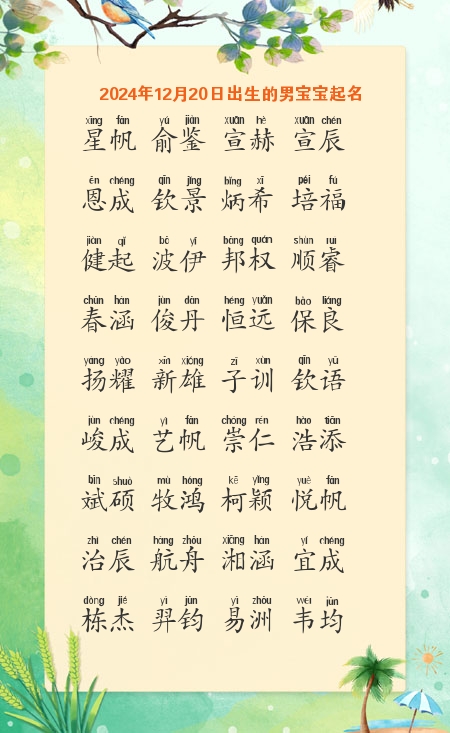 2024年12月20日出生的男宝宝起名
xīng fān yú jiàn xuān hè xuān chén
星帆 俞鉴 宣赫 宣辰
ēn chéng qīn jǐng bǐng xī péi fú
恩成 钦景 炳希 培福
jiàn qǐ bō yī bāng quán shùn ruì
健起 波伊 邦权 顺睿
chūn hán jùn dān héng yuǎn bǎo liáng
春涵 俊丹 恒远 保良
yáng yào xīn xióng zǐ xùn qīn yǔ
扬耀 新雄 子训 钦语
jùn chéng yì fān chóng rén hào tiān
峻成 艺帆 崇仁 浩添
bīn shuò mù hóng kē yǐng yuè fān
斌硕 牧鸿 柯颖 悦帆
zhì chén háng zhōu xiāng hán yí chéng
治辰 航舟 湘涵 宜成
dòng jié yì jūn yì zhōu wéi jūn
栋杰 羿钧 易洲 韦均